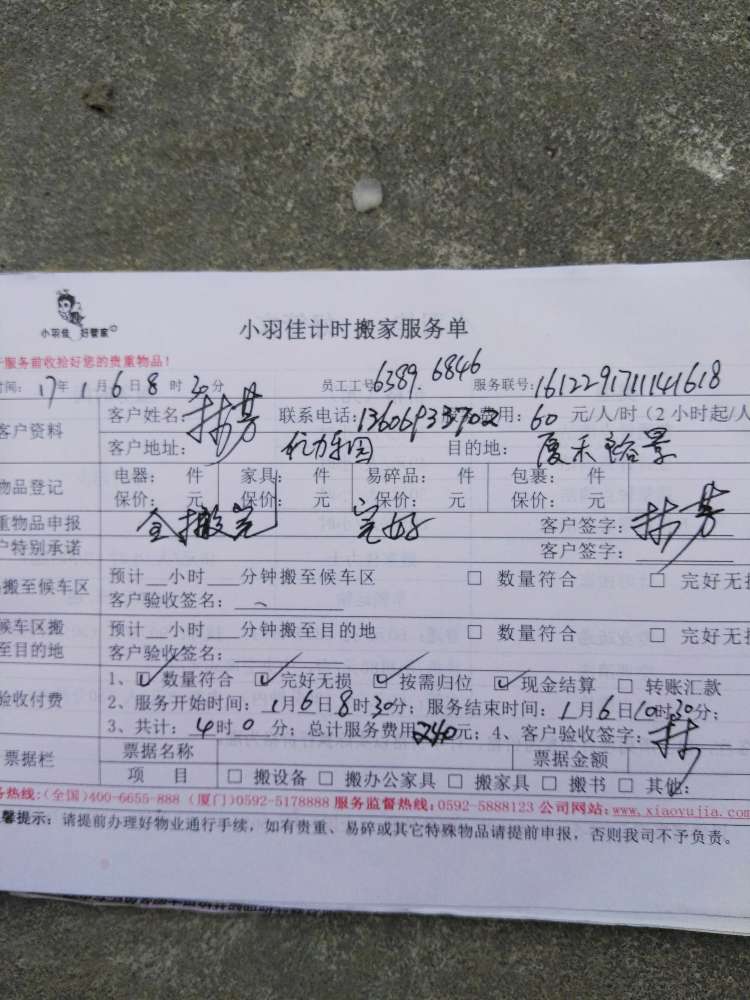 小羽佳 好管家
小羽佳计时搬家服务单
服务前收拾好您的贵重物品！
时间：17年1月6日8时30分 员工工号：6389.6846 服务联号：1612291711141618
客户资料 客户姓名：林芳 联系电话： 服务费用：60元/人/时（2小时起/人
客户地址： 目的地：厦禾裕景
物品登记 电器： 件 家具： 件 易碎品： 件 包裹： 件
保价： 元 保价： 元 保价： 元 保价： 元
重物品申报 全搬完 完好 客户签字：林芳
户特别承诺 客户签字：
搬至候车区 预计__小时___分钟搬至候车区 □ 数量符合 □ 完好无损
客户验收签名：
候车区搬至目的地 预计__小时___分钟搬至目的地 □ 数量符合 □ 完好无损
客户验收签名：
验收付费 1、☑数量符合 ☑完好无损 ☑按需归位 ☑现金结算 □ 转账汇款
2、服务开始时间：1月6日8时30分；服务结束时间：1月6日10时30分；
3、共计：4时0分；总计服务费用240元；4、客户验收签字：林
票据栏 票据名称 票据金额
项 目 □ 搬设备 □ 搬办公家具 □ 搬家具 □ 搬书 □ 其他：
务热线：(全国)400-6655-888 (厦门)0592-5178888 服务监督热线：0592-5888123 公司网站：www.xiaoyujia.com
馨提示：请提前办理好物业通行手续，如有贵重、易碎或其它特殊物品请提前申报，否则我司不予负责。